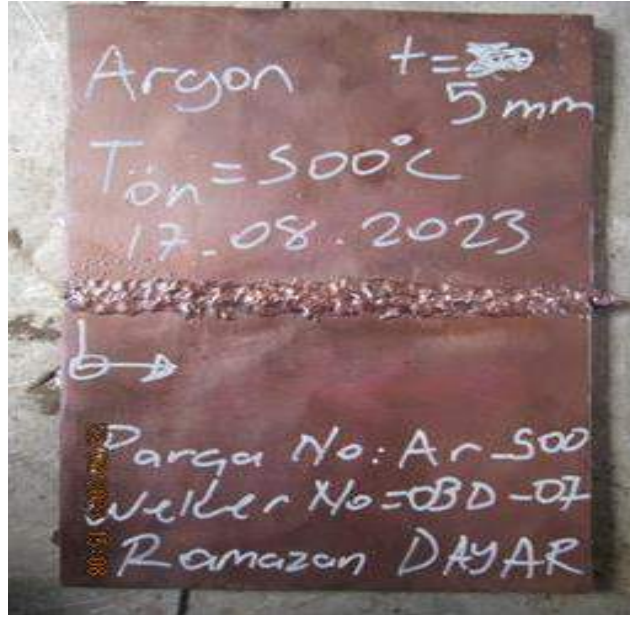 Argon t=
5 mm
Tön=500°C
17.08.2023
Parça No: Ar-500
Welder No=OBD-07
Ramazan DAYAR